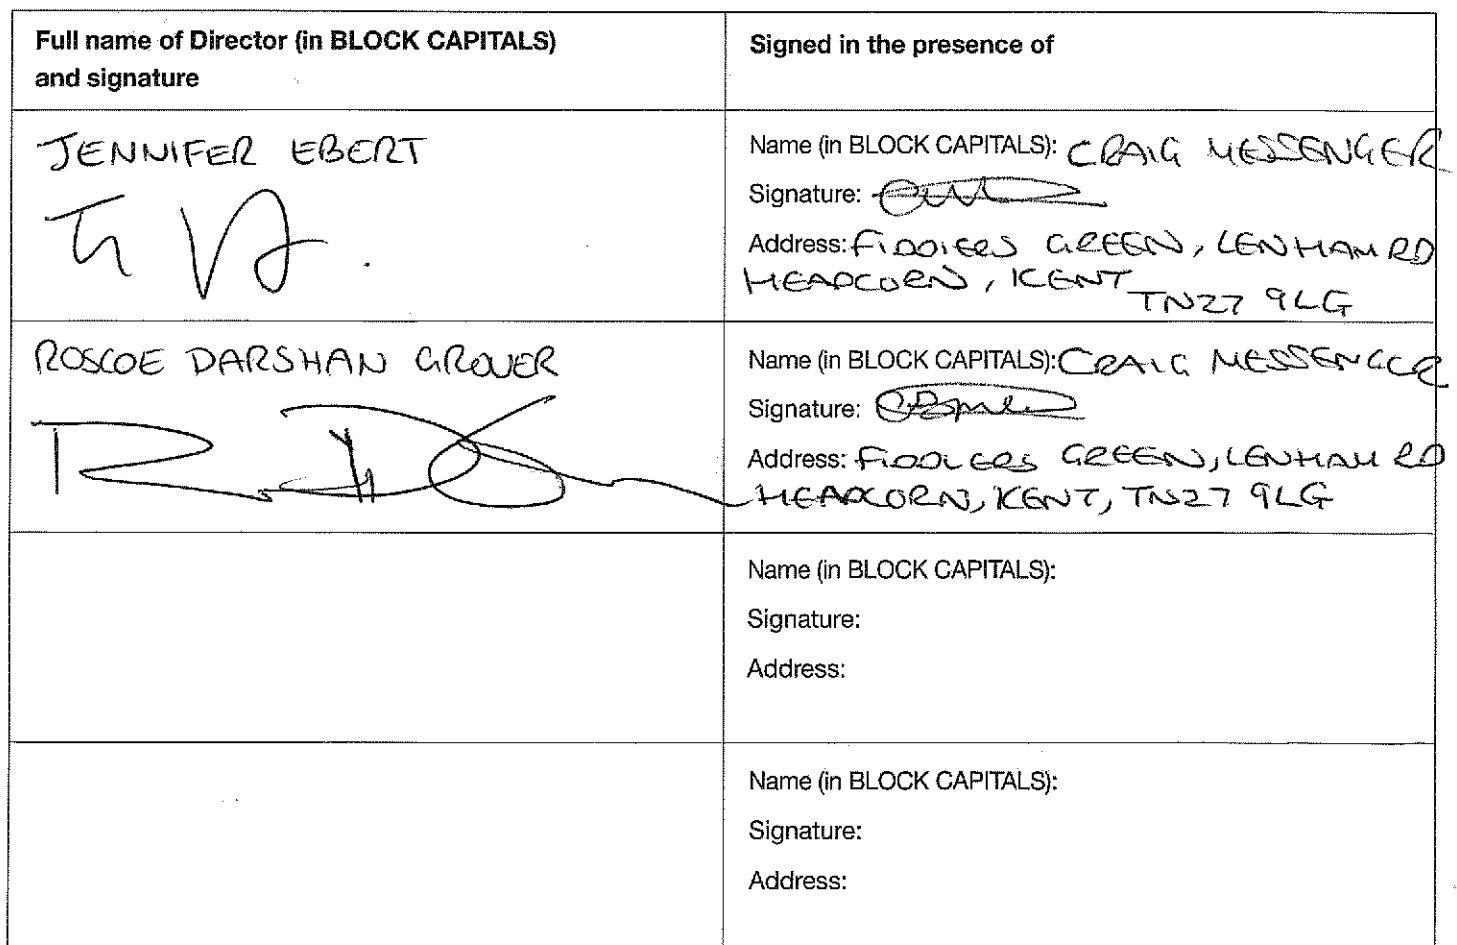 Full name of Director (in BLOCK CAPITALS)
and signature
Signed in the presence of
JENNIFER EBERT
Name (in BLOCK CAPITALS): CRAIG MESSENGER
Signature:
Address: FIDDLERS GREEN, LENHAM RD
HEADCORN, KENT
TN27 9LG
ROSCOE DARSHAN GROVER
Name (in BLOCK CAPITALS): CRAIG MESSENGER
Signature:
Address: FIDDLERS GREEN, LENHAM RD
HEADCORN, KENT, TN27 9LG
Name (in BLOCK CAPITALS):
Signature:
Address:
Name (in BLOCK CAPITALS):
Signature:
Address: